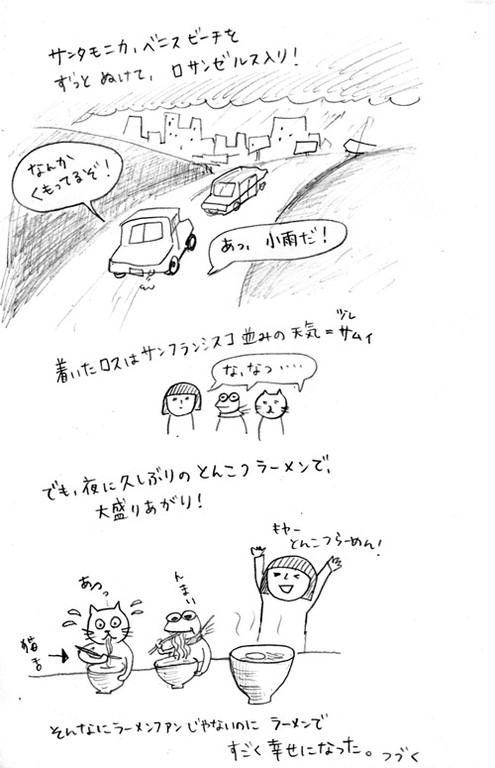 サンタモニカ,ベニスビーチを
ずっとぬけて、ロサンゼルス入り!
なんか
くもってるぞ!
あっ、小雨だ!
着いたロスはサンフランシスコ並みの天気=サムイ
な,なっ・・・・
でも,夜に久しぶりのとんこつラーメンで,
大盛りあがり!
キャー
とんこつらーめん!
あつっ
んまい
猫舌
そんなにラーメンファンじゃないのに ラーメンで
すごく幸せになった。つづく